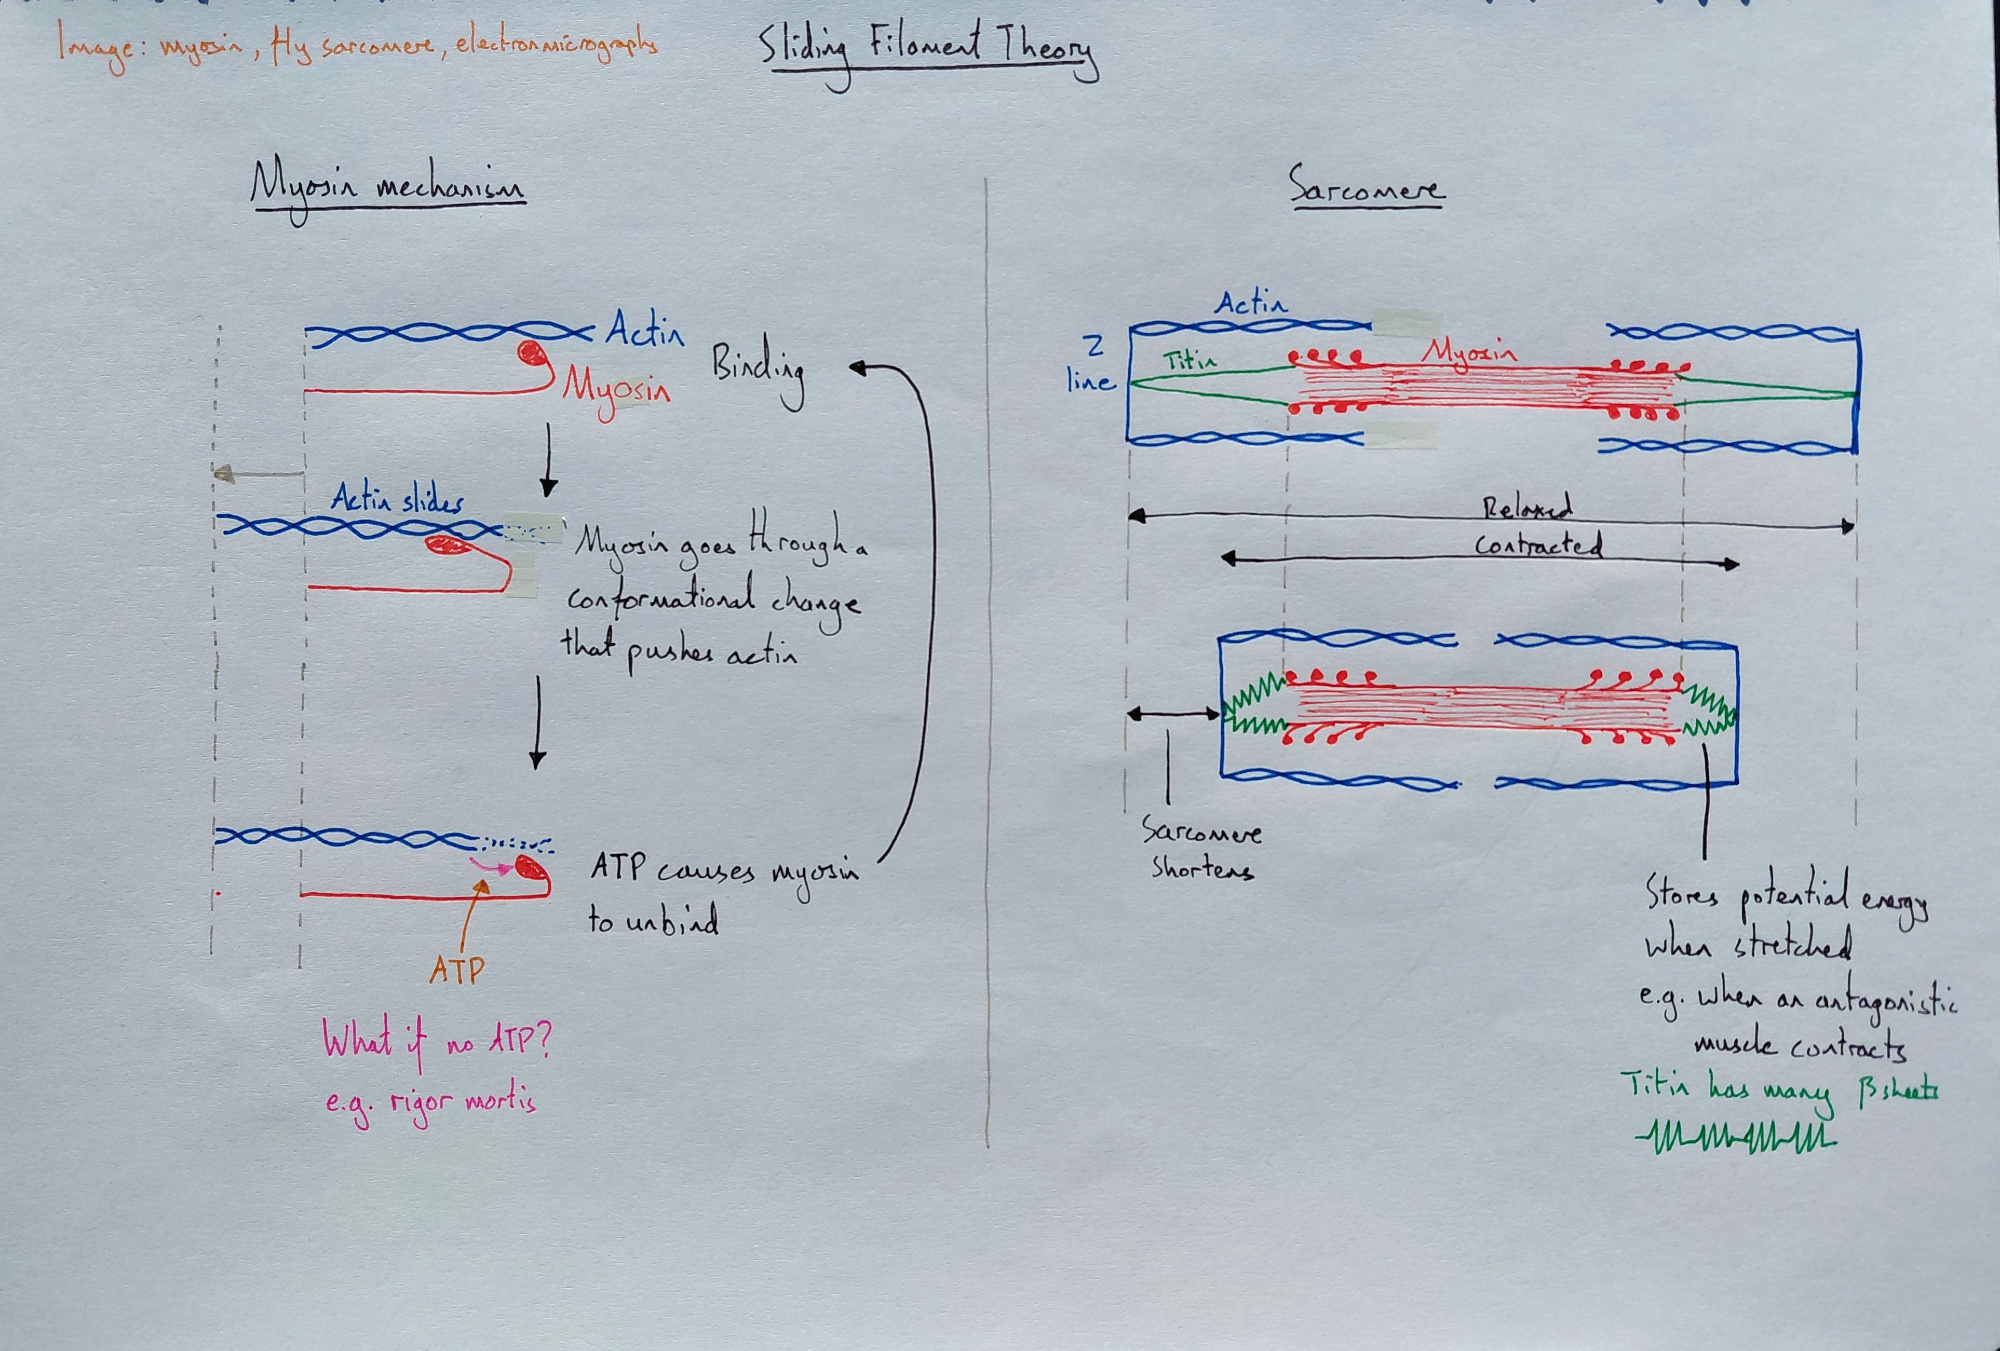 Image: myosin, fly sarcomere, electronmicrographs
Sliding Filament Theory
Myosin mechanism
Actin
Myosin
Binding
Actin slides
Myosin goes through a
conformational change
that pushes actin
ATP causes myosin
to unbind
ATP
What if no ATP?
e.g. rigor mortis
Sarcomere
Actin
Z
line
Titin
Myosin
Relaxed
Contracted
Sarcomere
shortens
Stores potential energy
when stretched
e.g. when an antagonistic
muscle contracts
Titin has many β sheets